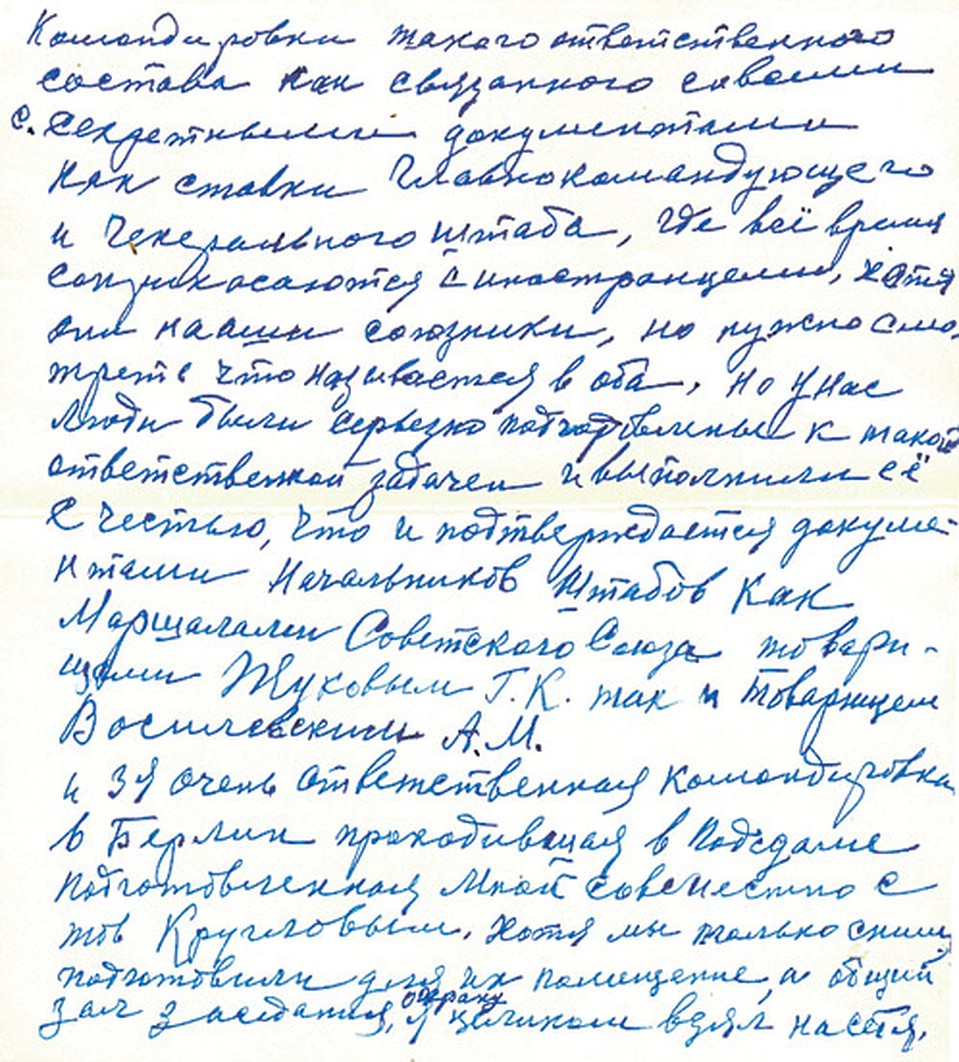 Командировки такого ответственного
состава как связанного с овсеми
с. секретными документами
как ставки Главнокомандующего
и Генерального штаба, где всё время
соприкасаются с иностранцами, хотя
они нааши союзники, но нужно смо
треть что называется в оба, но у нас
люди были серьезно подготовленые к такой
ответственной задачеи и выполнили её
с честью, что и подтверждается докуме-
нтами Начальников Штабов как
Маршалами Советского Союза товари-
щами Жуковым Г.К. так и товарищем
Восилевским А.М.
и 3я очень ответственная командировка
в Берлин проходившая в Подсдаме
подготовленная мной совместно с
тов Кругловым. Хотя мы только сним
подготовили для их помещение, а общий
зал заседания, охрану я целиком взял насебя.